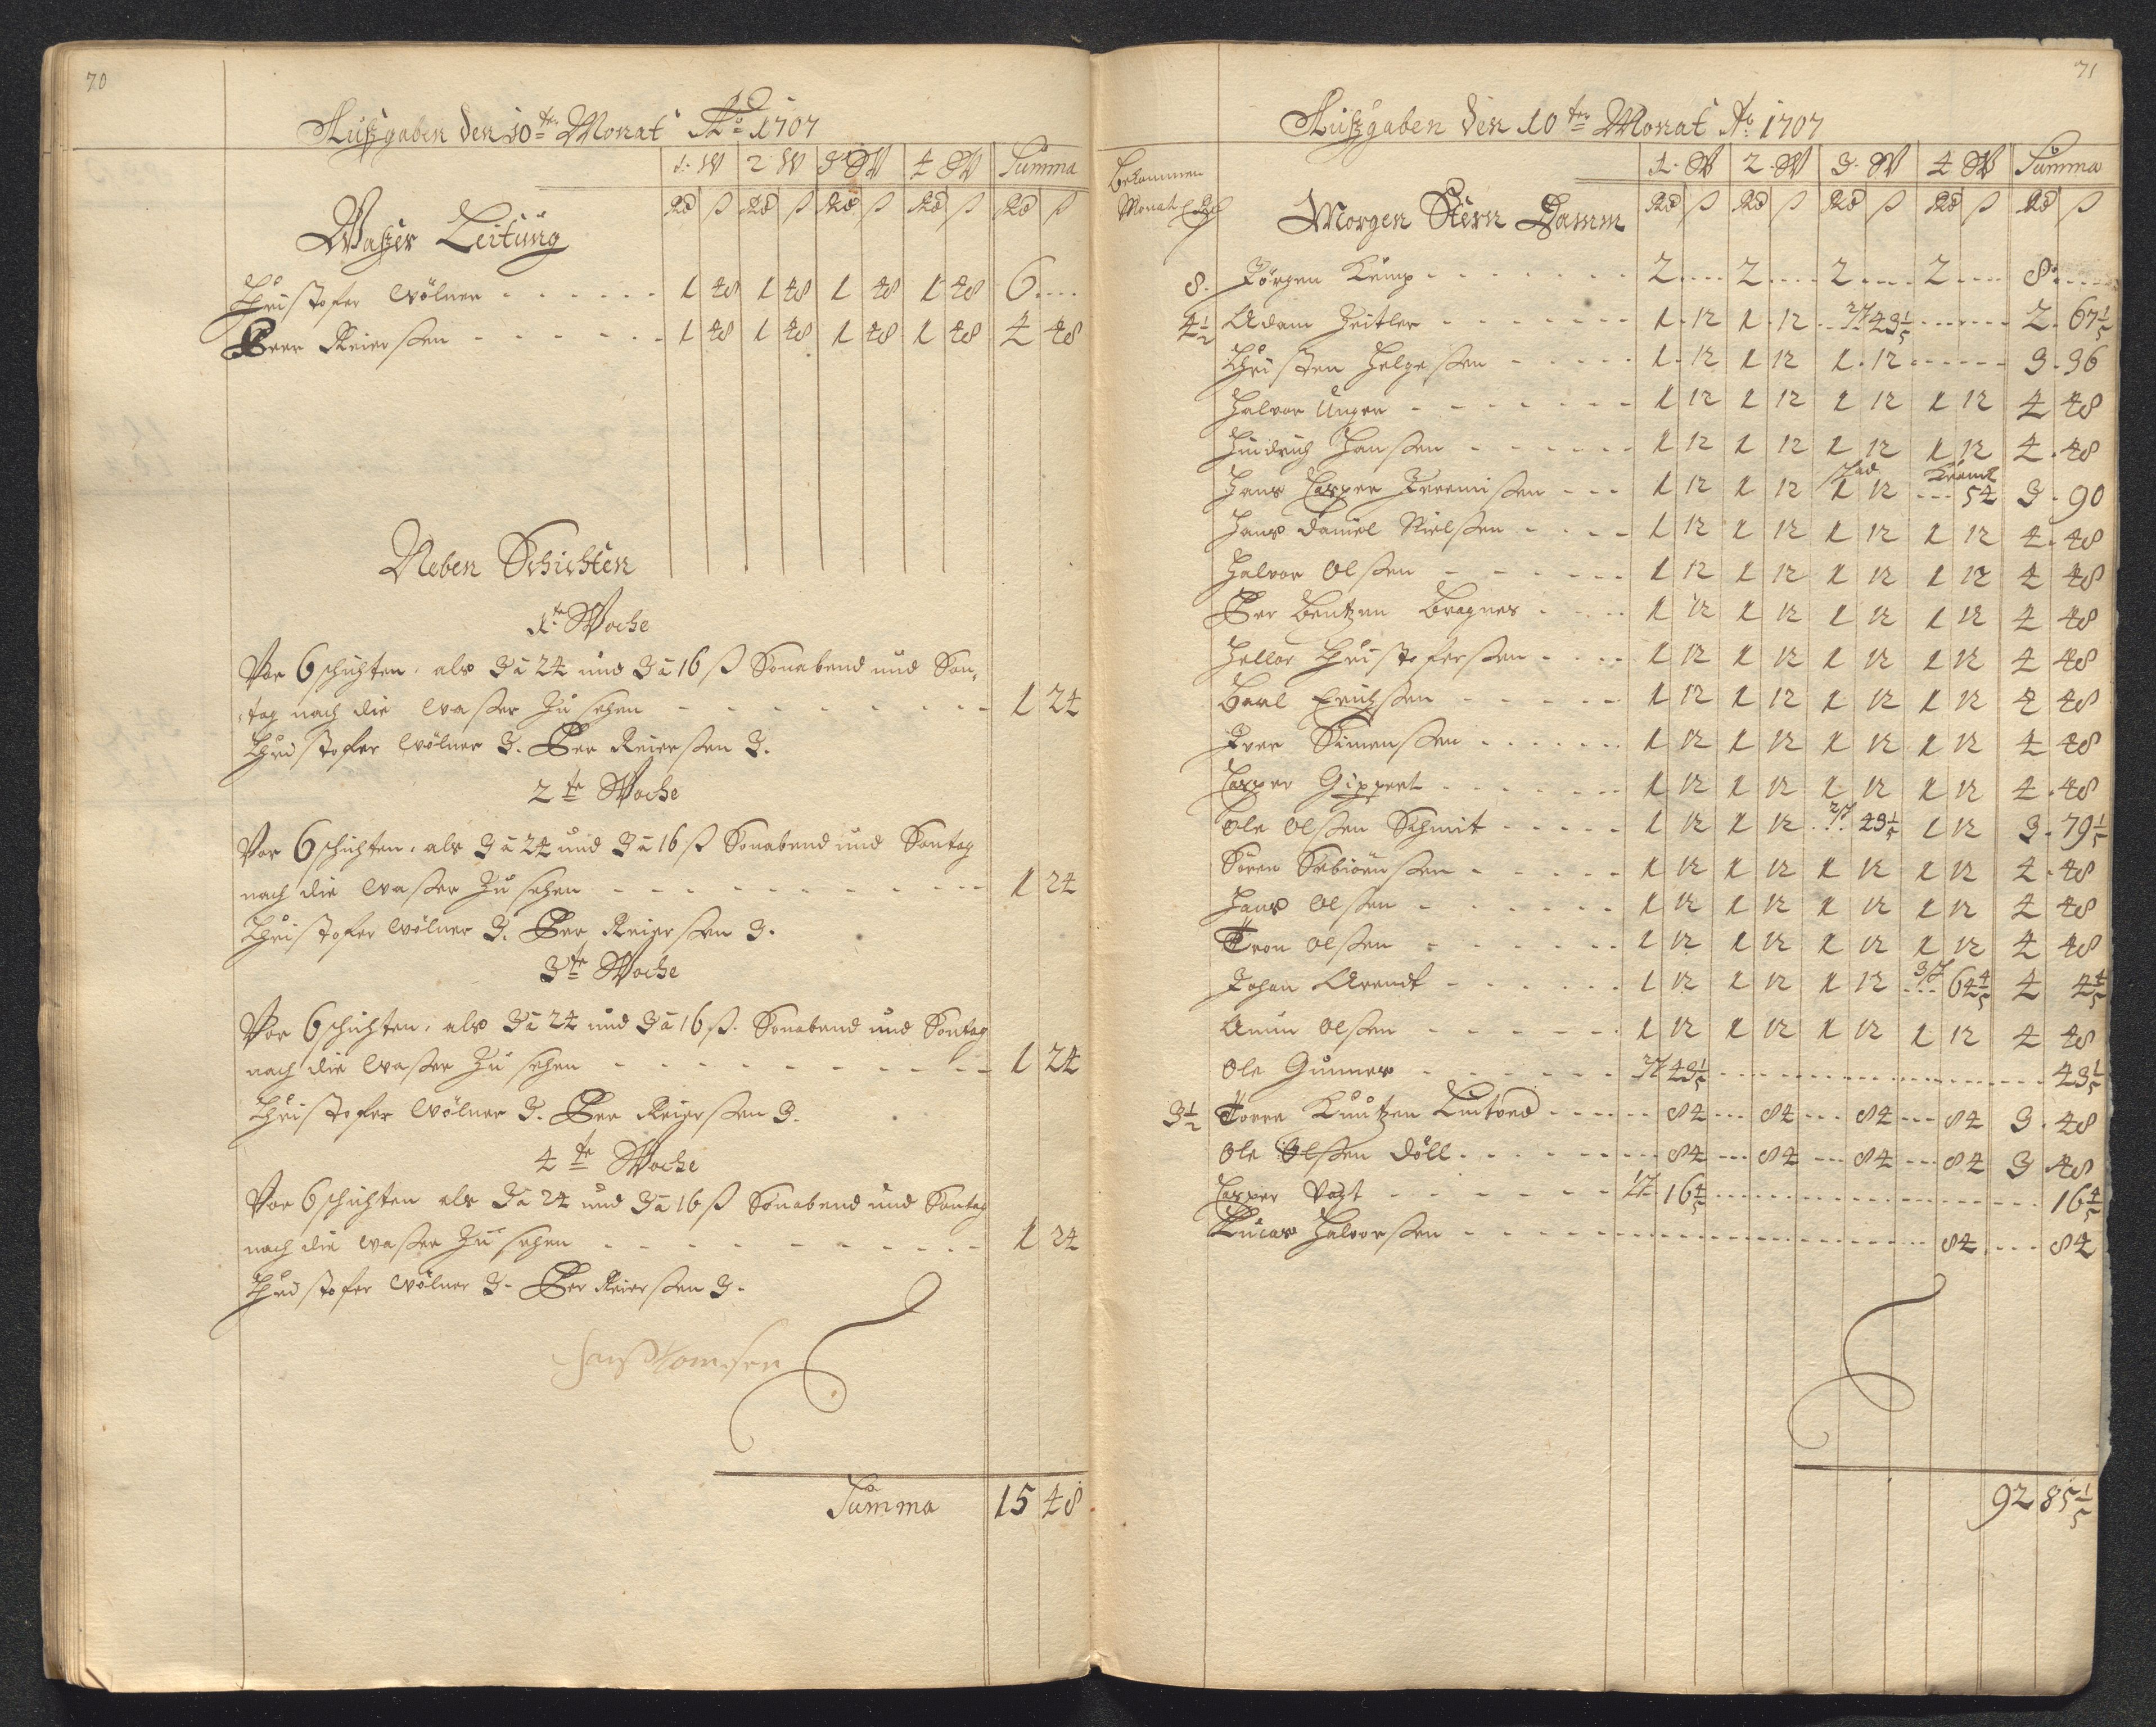 70
Außgaben den 10te Monat Ao 1707
1. W 2 W 3 W 4 W Summa
Rd ß Rd ß Rd ß Rd ß Rd ß
Waßer Leitung
Christofer Wölner - - - - - - 1 48 1 48 1 48 1 48 6 ....
Peer Reierßen - - - - - - 1 48 1 48 1 48 1 48 4 48
Neben Schichten
1te Woche
Vor 6 schichten, als 3 a 24 und 3 a 16 ß Sonabend und Son,
,tag nach die Waßer Zu sehen - - - - - - - - 1 24
Christofer Wölner 3. Per Reierßen 3.
2te Woche
Vor 6 schichten, als 3 a 24 und 3 a 16 ß Sonabend und Sontag
nach die Waßer Zu sehen - - - - - - - - - - 1 24
Christofer Wölner 3. Per Reierßen 3.
3te Woche
Vor 6 schichten, als 3 a 24 und 3 a 16 ß. Sonabend und Sontag
nach die Waßer Zu sehen - - - - - - - - - - 1 24
Christofer Wölner 3. Per Reierßen 3.
4te Woche
Vor 6 schichten als 3 a 24 und 3 a 16 ß Sonabend und Sontag
nach die Waßer Zu sehen - - - - - - - - - - 1 24
Christofer Wölner 3. Per Reierßen 3.
Summa 15 48
71
Außgaben den 10te Monat Ao 1707
Bekommen
Monat
1. W 2. W 3. W 4 W Summa
Rd ß Rd ß Rd ß Rd ß Rd ß
Morgen Stern Damm
8. Jörgen Kump - - - - - - - 2 .... 2 .... 2 .... 2 .... 8 ....
4 1/2 Adam Zeitler - - - - - - - 1 12 1 12 .. 2/7 43 1/5 ...... 2 67 1/5
Christen Helgeßen - - - - - 1 12 1 12 1 12 ...... 3 36
Halvor Unger - - - - - - - 1 12 1 12 1 12 1 12 4 48
Hindrich Hanßen - - - - - - 1 12 1 12 1 12 1 12 4 48
Hans Casper Jeremißen - - - 1 12 1 12 1 12 Kranck ... 54 3 90
Hans Daniel Nielßen - - - - 1 12 1 12 1 12 1 12 4 48
Halvor Olßen - - - - - - 1 12 1 12 1 12 1 12 4 48
Per Bentzen Bragnes - - - - 1 12 1 12 1 12 1 12 4 48
Hellor Christoferßen - - - - 1 12 1 12 1 12 1 12 4 48
Paal Erichßen - - - - - 1 12 1 12 1 12 1 12 4 48
Iver Simenßen - - - - - - 1 12 1 12 1 12 1 12 4 48
Casper Gippert - - - - - - 1 12 1 12 1 12 1 12 4 48
Ole Olßen Schmit - - - - - 1 12 1 12 .. 2/7 43 1/5 1 12 3 79 1/5
Sören - - - - - 1 12 1 12 1 12 1 12 4 48
Hans Olßen - - - - - - 1 12 1 12 1 12 1 12 4 48
Tron Olßen - - - - - - 1 12 1 12 1 12 1 12 4 48
Johan Arendt - - - - - - 1 12 1 12 1 12 3/7 ... 64 4/5 4 4 4/5
Amun Olßen - - - - - - 1 12 1 12 1 12 1 12 4 48
Ole Gunner - - - - - - 2/7 43 1/5 .................. 43 1/5
3 1/2 Torre Knutzen Lintved - - - - - 84 ... 84 ... 84 ... 84 3 48
Ole Olßen Döll - - - - - - 84 ... 84 ... 84 ... 84 3 48
Casper Vogt - - - - - - 1/7 16 4/5 .................. 16 4/5
Lucas Halvorßen - - - - - - .................. 84 .... 84
92 85 1/5